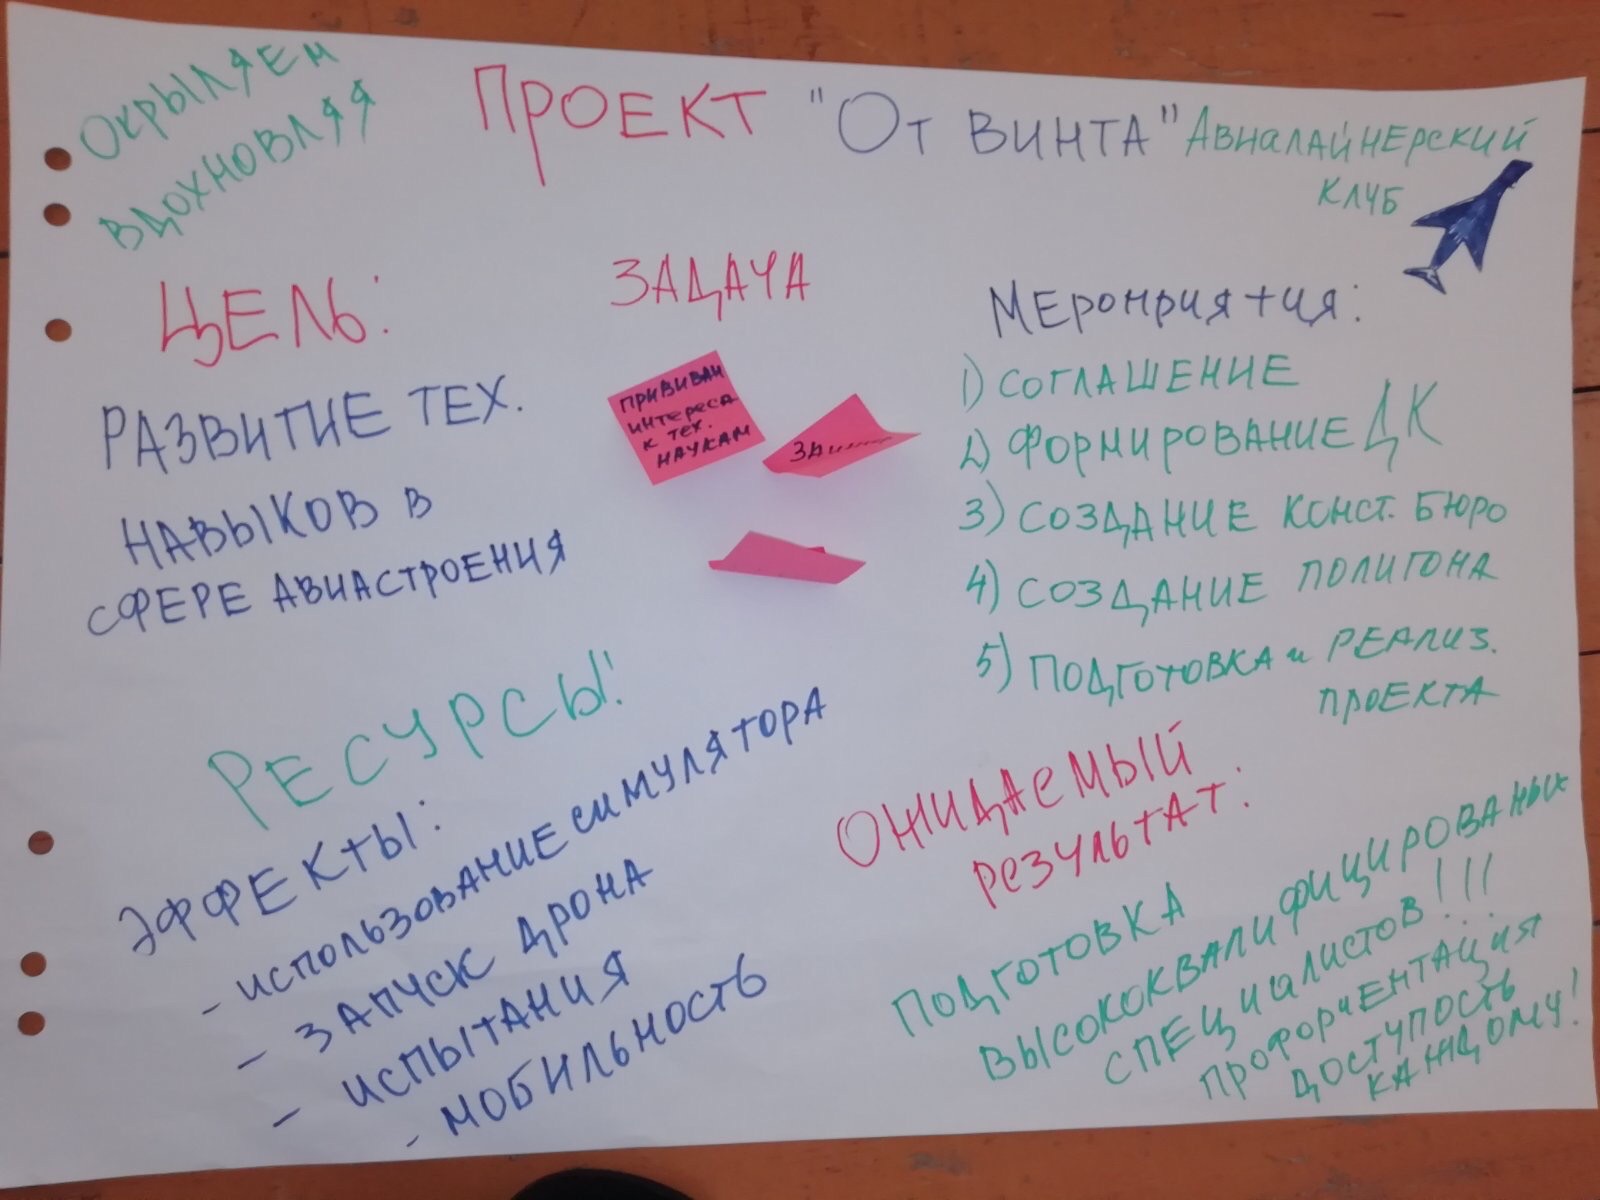 Окрыляем
вдохновляя
ПРОЕКТ "От винта"
Авиалайнерский
клуб
ЦЕЛЬ:
РАЗВИТИЕ ТЕХ.
НАВЫКОВ В
СФЕРЕ АВИАСТРОЕНИЯ
ЗАДАЧА
интереса
к тех.
наукам
Мероприятия:
1) СОГЛАШЕНИЕ
2) ФОРМИРОВАНИЕ ДК
3) СОЗДАНИЕ КОНСТ. БЮРО
4) СОЗДАНИЕ ПОЛИГОНА
5) ПОДГОТОВКА и РЕАЛИЗ.
ПРОЕКТА
РЕСУРСЫ:
ЭФФЕКТЫ:
- ИСПОЛЬЗОВАНИЕ СИМУЛЯТОРА
- ЗАПУСК ДРОНА
- ИСПЫТАНИЯ
- МОБИЛЬНОСТЬ
ОЖИДАЕМЫЙ
РЕЗУЛЬТАТ:
ПОДГОТОВКА
ВЫСОКОКВАЛИФИЦИРОВАНЫХ
СПЕЦИАЛИСТОВ!!!
ПРОФОРИЕНТАЦИЯ
ДОСТУПОСТЬ
КАЖДОМУ!